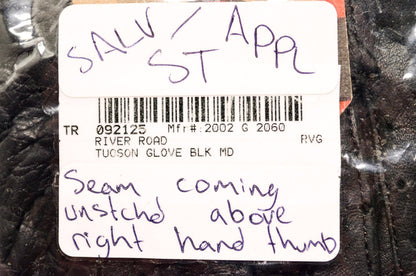 SALV / APPL
ST
TR 092125 Mfr#:2002 G 2060
RIVER ROAD RVG
TUCSON GLOVE BLK MD
Seam coming
unstchd above
right hand thumb